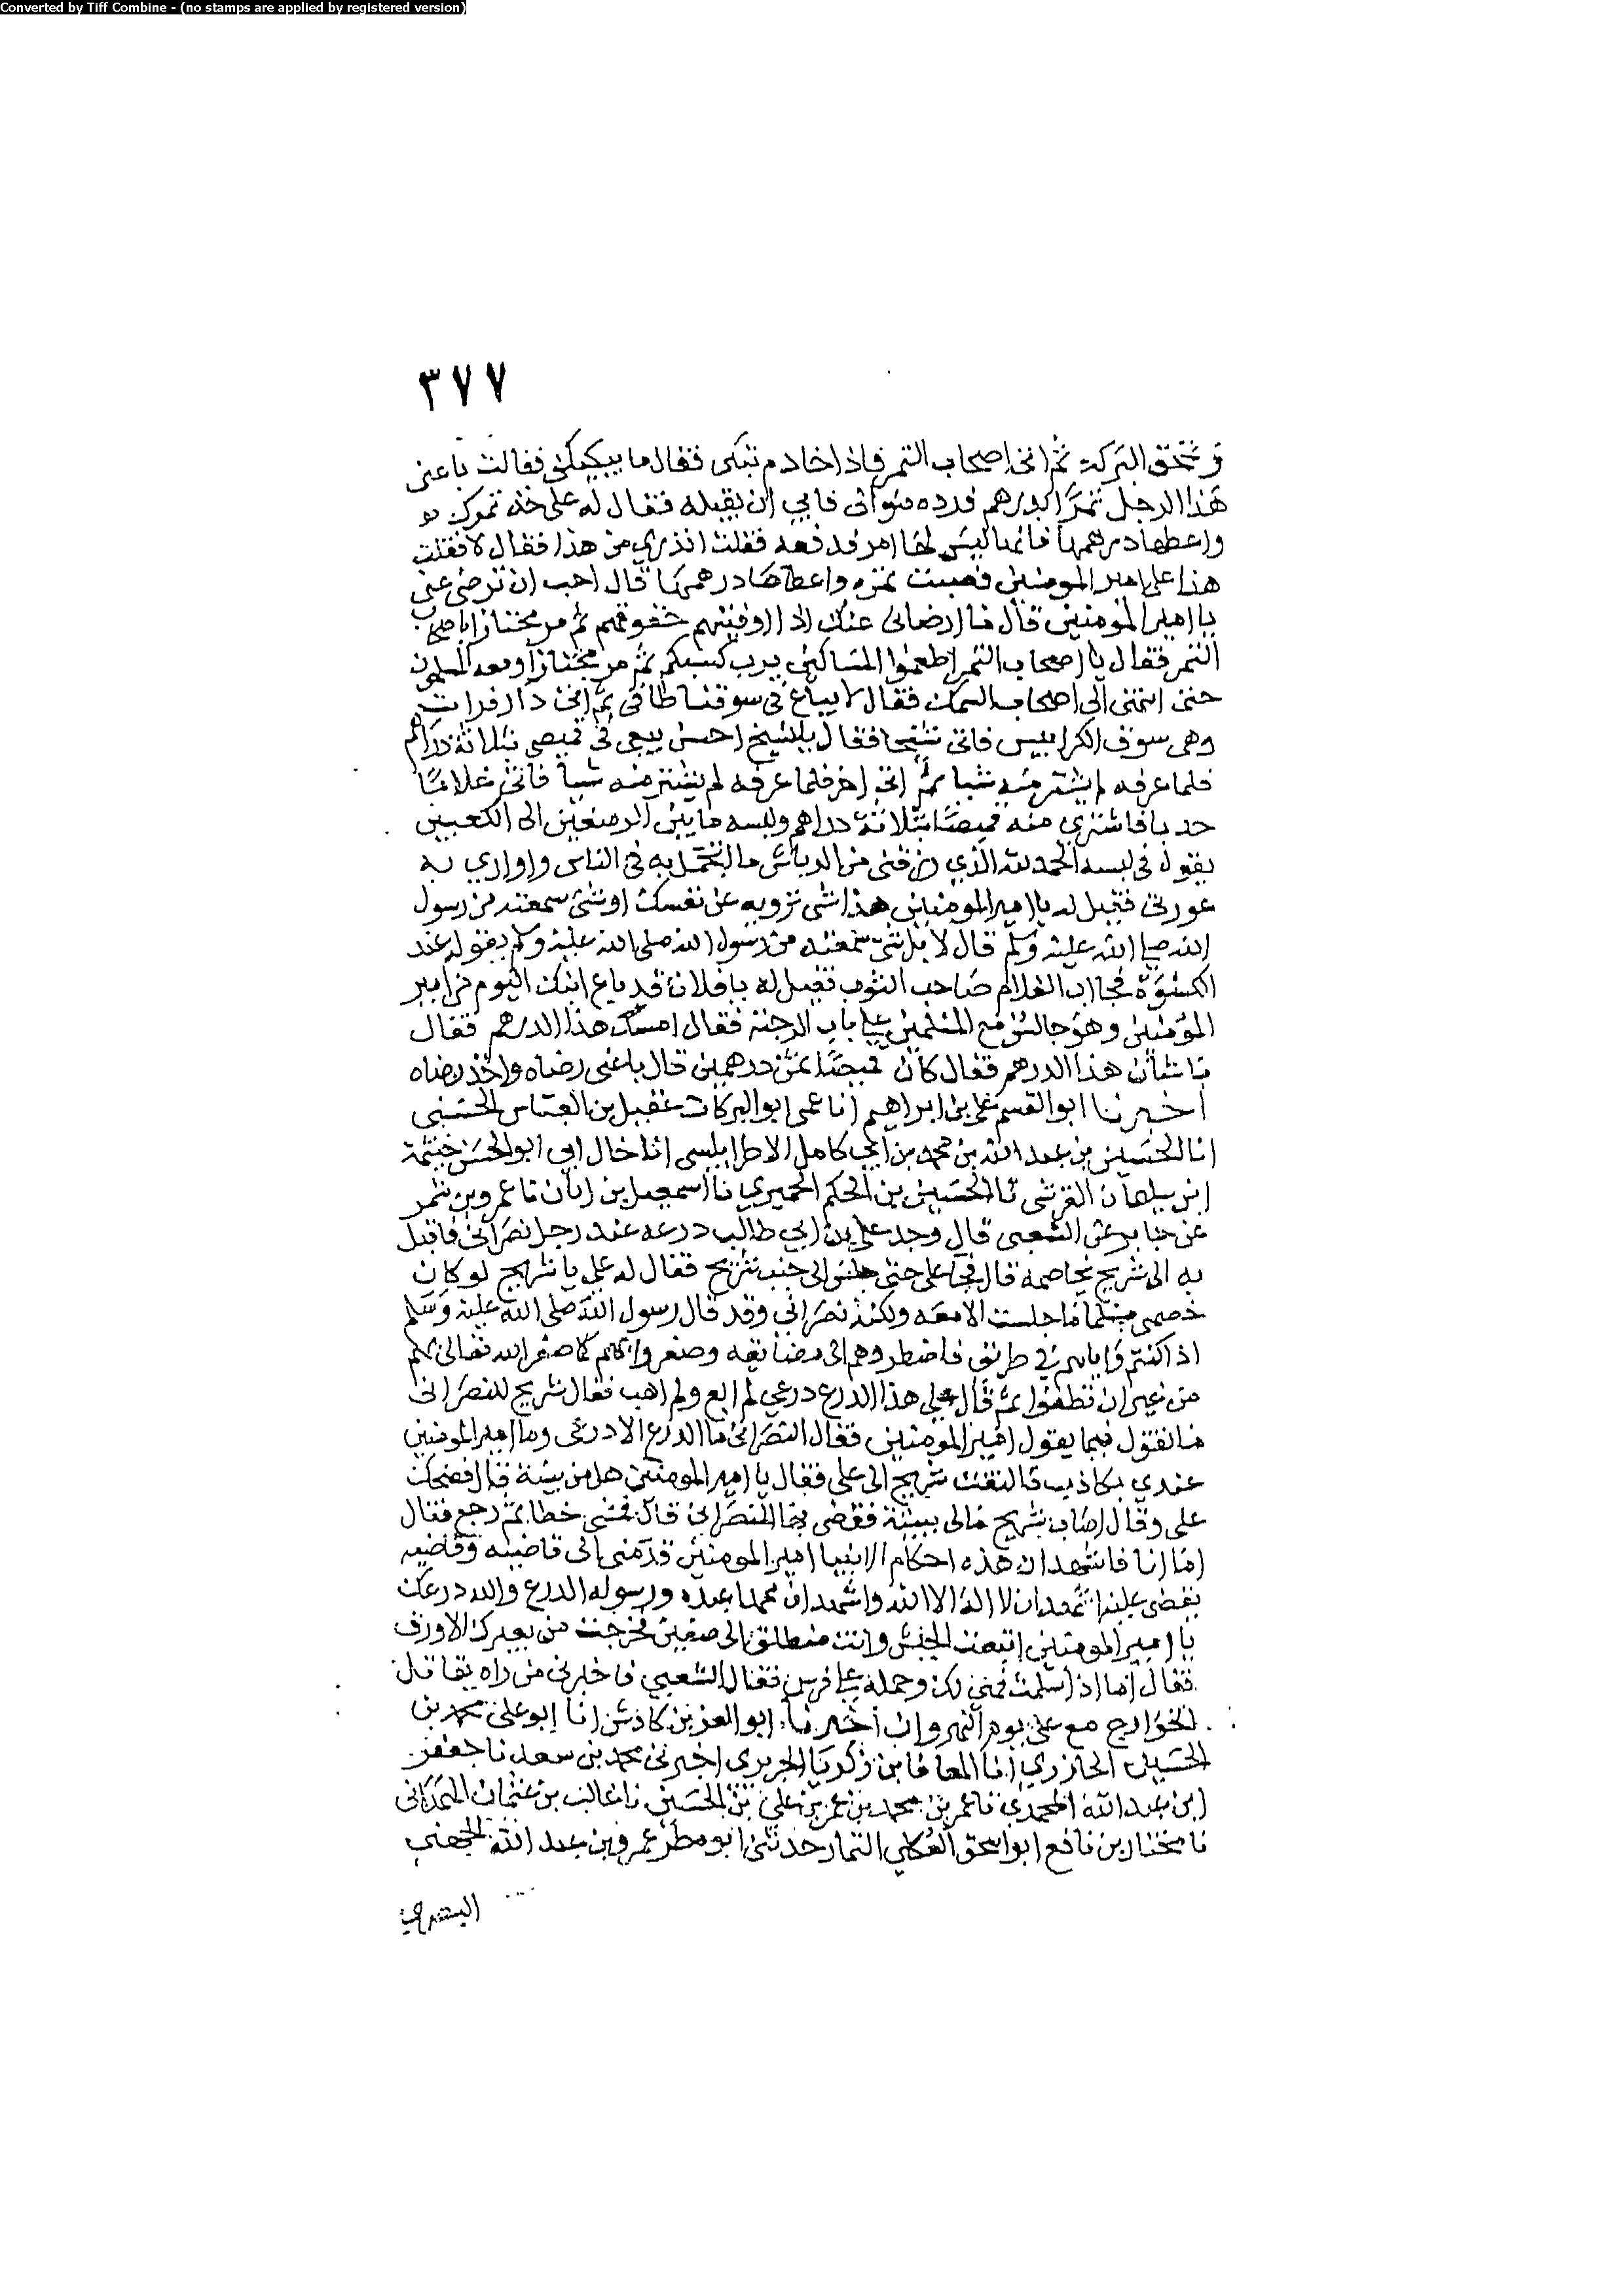 Converted by Tiff Combine - (no stamps are applied by registered version)
٣٧٧
وتمحق البركة ثم اتى اصحاب التمر فاذا خادم تبكى فقال ما يبكيك فقالت باعنى
هذا الرجل تمرا بدرهم فرده موالى فابى ان يقبله فقال له على خذ تمرك
واعطها درهمها فانها ليس لها امر فدفعه فقلت اتدري من هذا فقال لا فقلت
هذا على امير المومنين فصبت تمره واعطاها درهمها قال احب ان ترضى عنى
يا امير المومنين قال ما ارضانى عنك اذا اوفيتهم حقوقهم ثم مر مجتازا باصحاب
التمر فقال يا اصحاب التمر اطعموا المساكين يرب كسبكم ثم مر مجتازا ومعه المسلمون
حتى انتهى الى اصحاب السمك فقال لا يباع فى سوقنا طافى ثم اتى دار فرات
وهى سوق الكرابيس فاتى شيخا فقال يا شيخ احسن بيعى فى قميصى بثلاثة دراهم
فلما عرفه لم يشتر منه شيا ثم اتى اخر فلما عرفه لم يشتر منه شيا فاتى غلاما
حدثا فاشترى منه قميصا بثلاثة دراهم ولبسه ما بين الرصغين الى الكعبين
يقول فى لبسه الحمد لله الذي رزقنى من الرياش ما اتجمل به فى الناس واواري به
عورتى فقيل له يا امير المومنين هذا شى ترويه عن نفسك او شى سمعته من رسول
الله صلى الله عليه وسلم قال لا بل شى سمعته من رسول الله صلى الله عليه وسلم يقوله عند
الكسوة فجا اب الغلام صاحب الثوب فقيل له يا فلان قد باع ابنك اليوم من امير
المؤمنين وهو جالس مع المسلمين على باب الرحبة فقال امسك هذا الدرهم فقال
ما شان هذا الدرهم فقال كان قميصا ثمن درهمين قال باعنى رضاى واخذ رضاه
اخبرنا ابو القسم على بن ابراهيم انا عمى ابو البركات عقيل بن العباس الحسينى
انا الحسين بن عبد الله بن محمد بن ابي كامل الاطرابلسى انا خال ابى ابو الحسن خيثمة
ابن سليمان القرشى نا الحسين بن الحكم الحميري نا اسمعيل بن ابان نا عمرو بن شمر
عن جابر عن الشعبى قال وجد على بن ابي طالب درعه عند رجل نصرانى فاقبل
به الى شريح يخاصمه قال فجا على حتى جلس الى جنب شريح فقال له على يا شريح لو كان
خصمى مسلما ما جلست الا معه ولكنه نصرانى وقد قال رسول الله صلى الله عليه وسلم
اذا كنتم واياهم في طريق فاضطروهم الى مضايقه وصغروا بهم كما صغر الله تعالى بهم
من غير ان تطغوا ثم قال على هذا الدرع درعي لم ابع ولم اهب فقال شريح للنصرانى
ما تقول فيما يقول امير المومنين فقال النصرانى ما الدرع الا درعى وما امير المومنين
عندي بكاذب فالتفت شريح الى على فقال يا امير المومنين هل من بينة قال فضحك
على وقال اصاب شريح مالى بينة فقضى بها للنصرانى قال فمشى خطا ثم رجع فقال
اما انا فاشهد ان هذه احكام الانبيا امير المومنين قدمنى الى قاضيه وقاضيه
يقضى عليه اشهد ان لا اله الا الله واشهد ان محمدا عبده ورسوله الدرع والله درعك
يا امير المومنين اتبعت الجيش وانت منطلق الى صفين فخرجت من بعيرك الاورق
فقال اما اذا اسلمت فهى لك وحمله على فرس فقال الشعبى فاخبرنى من راه يقاتل
الخوارج مع على يوم النهروان اخبرنا ابو العز بن كادش انا ابو على محمد بن
الحسين الجازري انا المعافا بن زكريا الجريرى اخبرنى محمد بن سعد نا جعفر
ابن عبد الله المحمدي نا عمر بن محمد بن عمر بن على بن الحسين نا غالب بن عثمان الهمدانى
نا مختار بن نافع ابو اسحق العكلي التمار حدثنى ابو مطر عمرو بن عبد الله الجهنى
البصرى